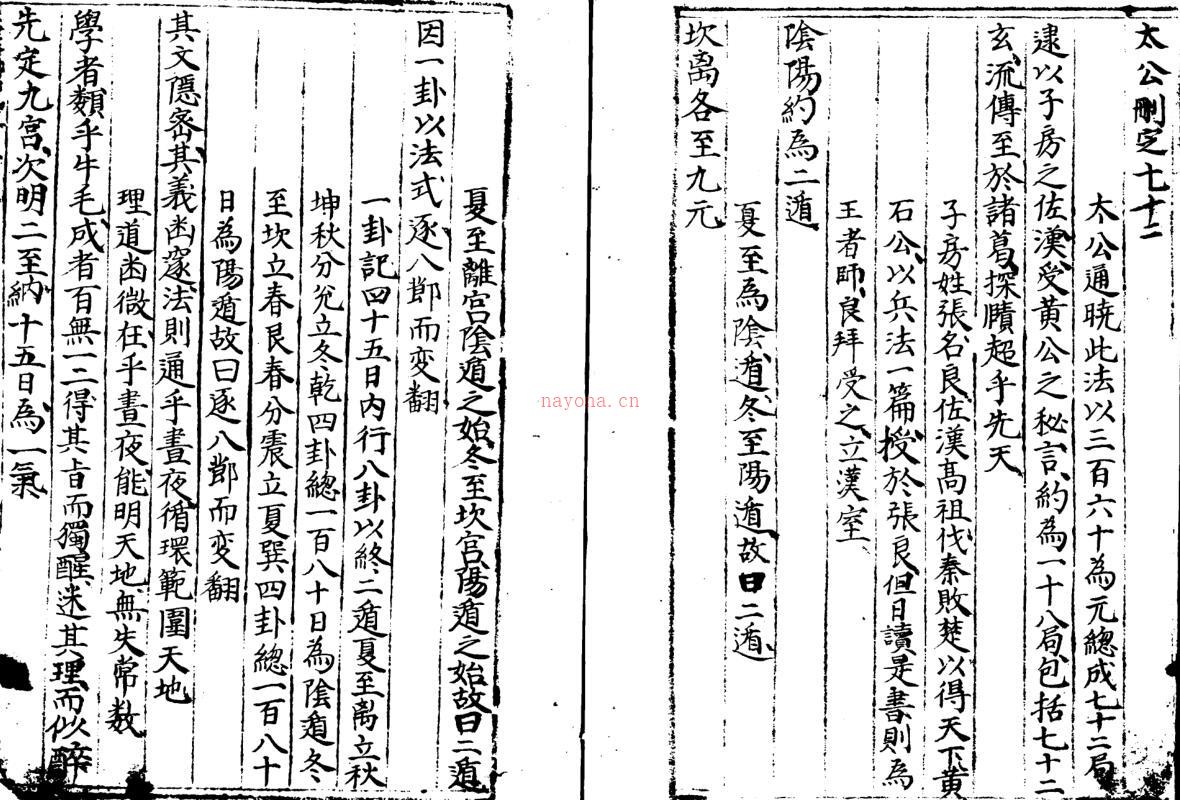 太公刪定七十二
太公通曉此法以三百六十為元總成七十二局
逮以子房之佐漢受黃公之秘言約為一十八局包括七十二
玄流傳至於諸葛探賾超乎先天
子房姓張名良佐漢髙祖伐秦敗楚以得天下黃
石公以兵法一篇授於張良但日讀是書則為
王者師良拜受之立漢室
陰陽約為二遁
夏至為陰遁冬至陽遁故曰二遁
坎离各至九元
夏至離宮陰遁之始冬至坎宮陽遁之始故曰二遁
因一卦以法式逐八節而变翻
一卦記四十五日內行八卦以終二遁夏至离立秋
坤秋分兊立冬乾四卦總一百八十日為陰遁冬
至坎立春艮春分震立夏巽四卦總一百八十
日為陽遁故曰逐八節而变翻
其文隱宻其義凾邃法則通乎晝夜循環範圍天地
理道凾微在乎晝夜能明天地無失常数
學者𩔖乎牛毛成者百無一二得其㫖而獨醒迷其理而似醉
先定九宮次明二至納十五日為一氣
nayona.cn